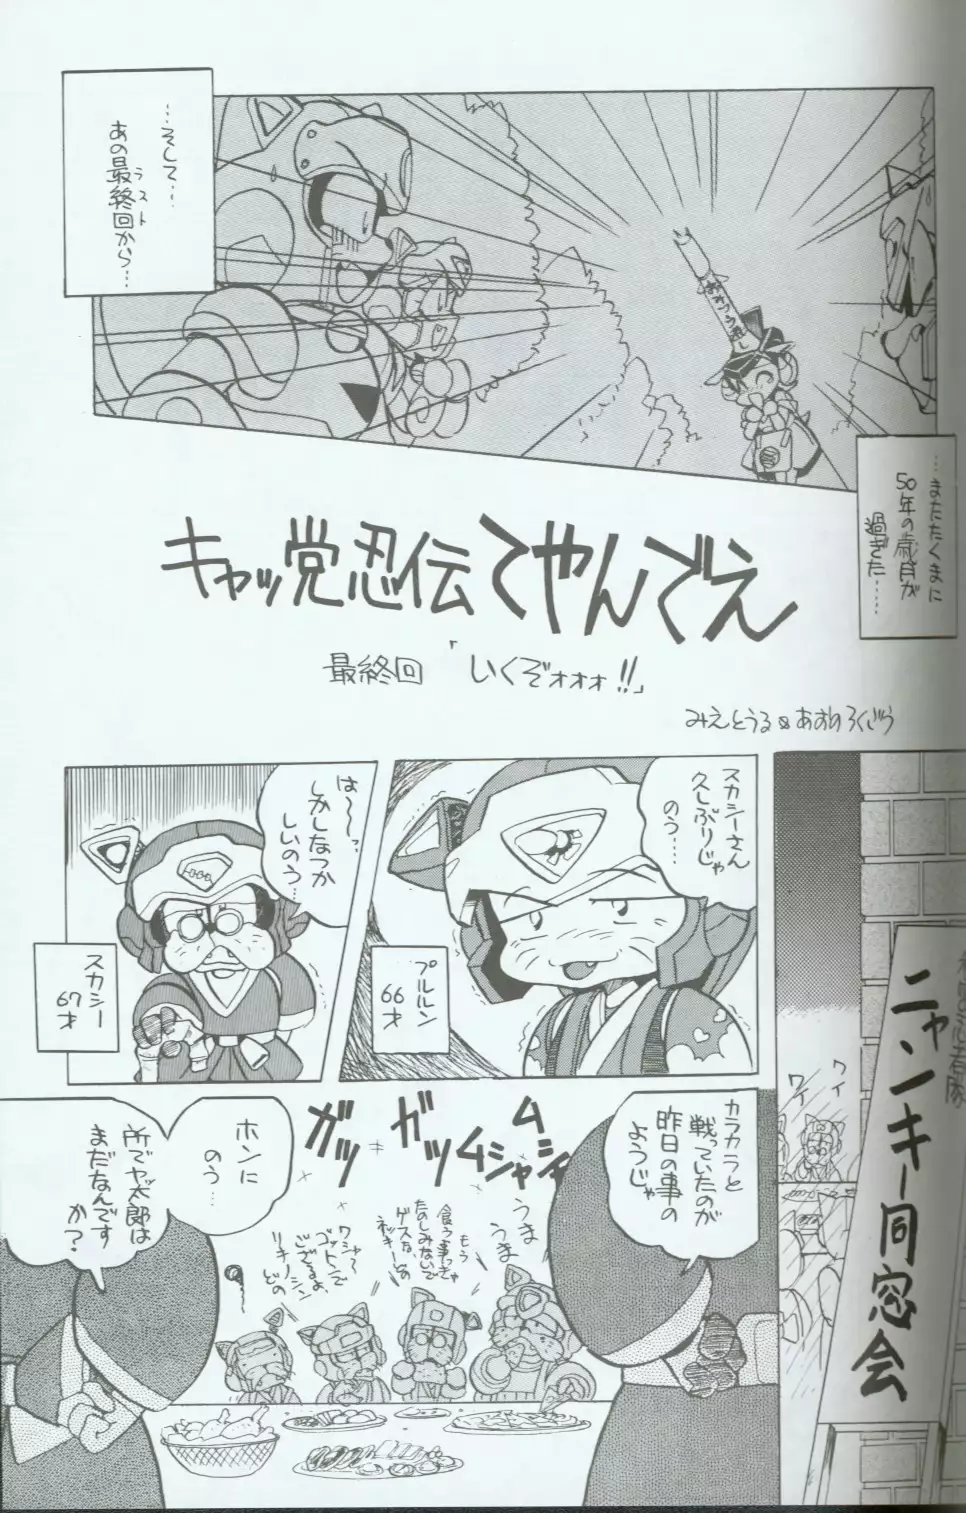 …そして…
あの最終回から…
ラスト
おみつう君し
…またたくまに
50年の歳月が
過ぎた……
キャッ党忍伝てやんでえ
最終回 「いくぞォォォ!!」
みえとうる&あおのろくごう
ニャンキー同窓会
ワイ
ワイ
スカシーさん
久しぶりじゃ
のう……
プルルン
66才
は〜〜っ…
しかしなつか
しいのう…
スカシー
67才
カラカラと
戦っていたのが
昨日の事の
ようじゃ
ムシャムシャ
ガツ
ガツ
うま
うま
もう
食う事っきゃ
たのしみないで
ゲスな、この
ネッキー
ワシャ〜
ゴットンで
ござるよ、
リキノーシン
どの
ホンに
のう…
所でヤッ太郎は
まだなんです
か?